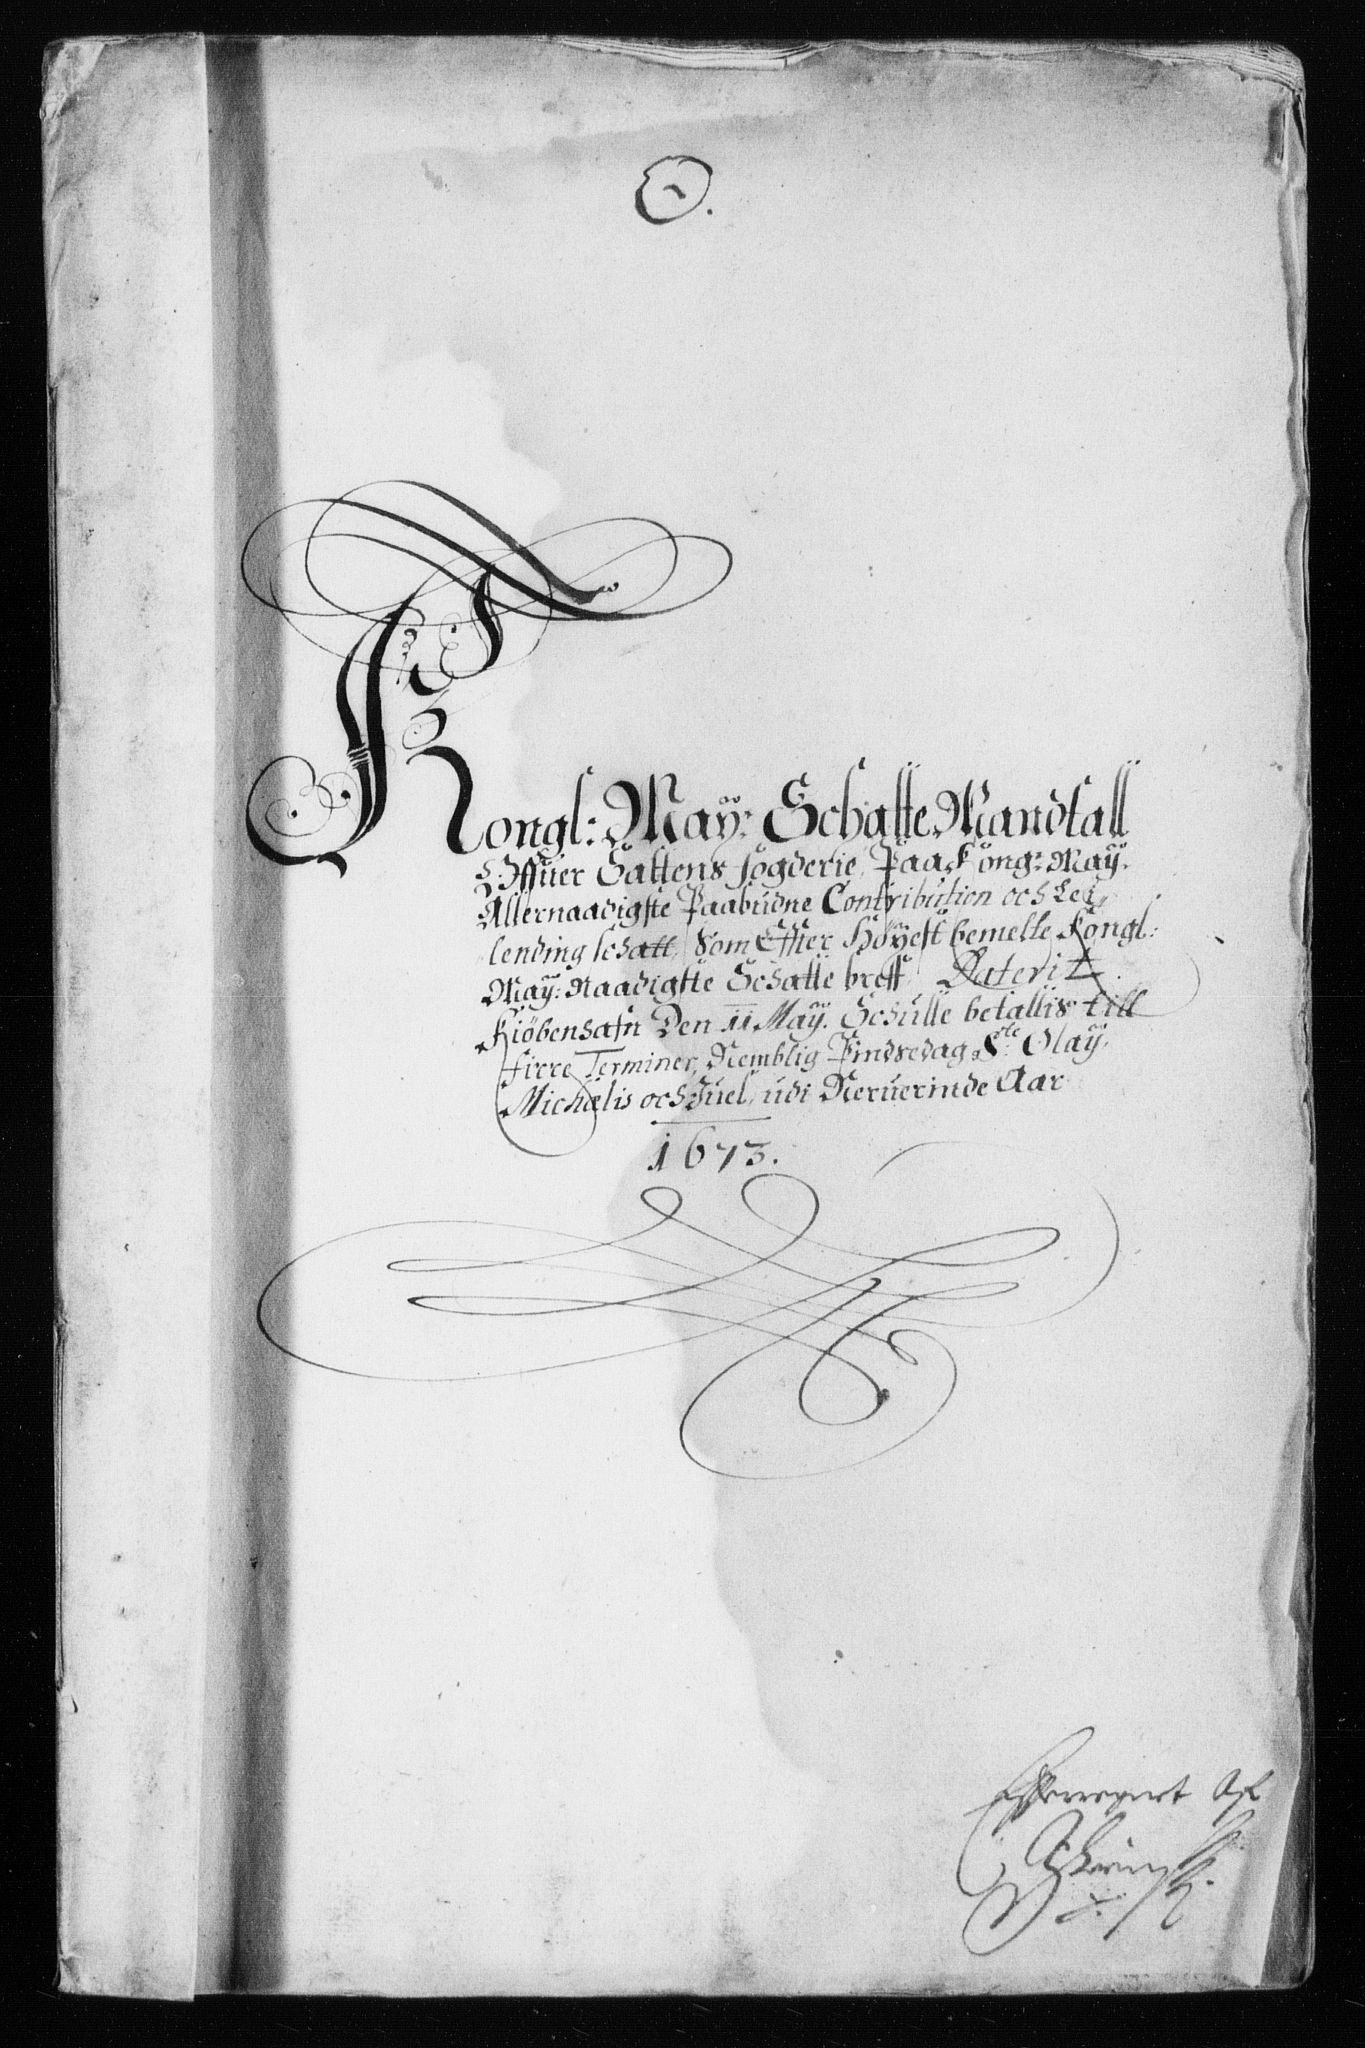 Kongl: Maÿ: Schatte Mandtall
Offuer Saltens fogderie, Paa Kong: Maÿ.
Allernaadigste Paabudne Contribution och Leÿ
lending schatt, Som Effter Höÿest bemelte Kongl:
Maÿ: Naadigste Schatte breff Daterit
Kiöbenhafn Den 11 Maÿ. Schulle betallis till
firre Terminer, Nemblig Pindsedag, Ste. Olaÿ.
Michaelis och Juel, udi Nerverinde Aar
1673.